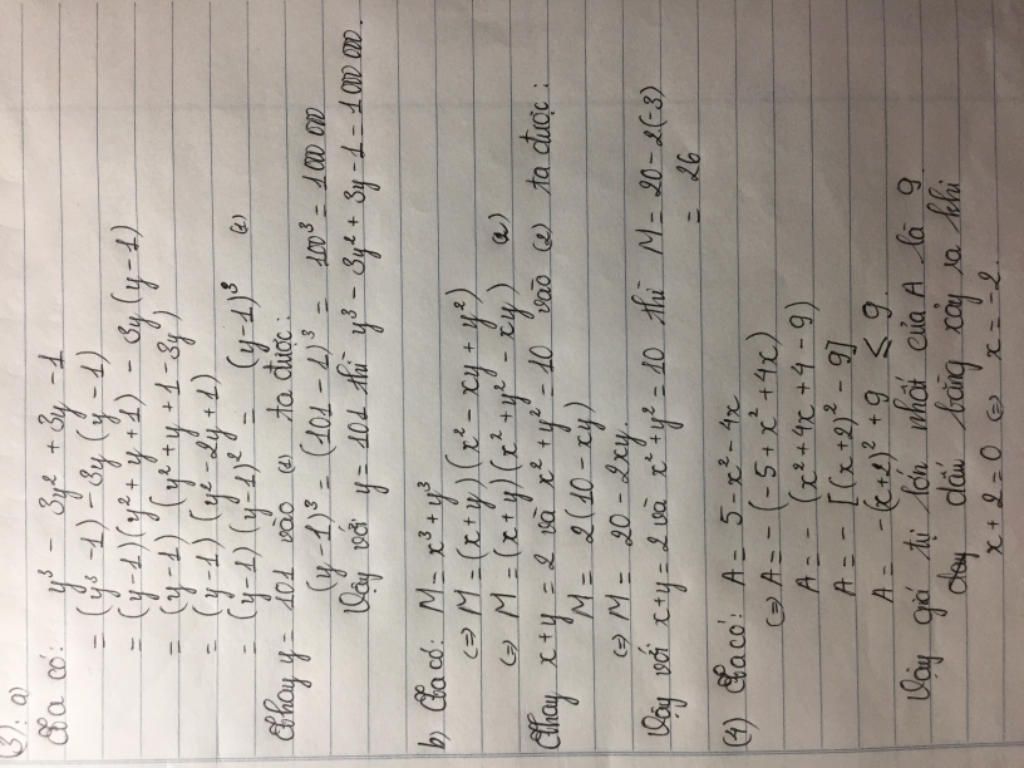 (3). a)
Ta có: y³ - 3y² + 3y - 1
= (y³ - 1) - 3y (y - 1)
= (y - 1) (y² + y + 1) - 3y (y - 1)
= (y - 1) (y² + y + 1 - 3y)
= (y - 1) (y² - 2y + 1)
= (y - 1) (y - 1)² = (y - 1)³ (*)
Thay y = 101 vào (*) ta được:
(y - 1)³ = (101 - 1)³ = 100³ = 1 000 000
Vậy với y = 101 thì y³ - 3y² + 3y - 1 = 1 000 000.
b) Ta có: M = x³ + y³
(=) M = (x + y) (x² - xy + y²)
(=) M = (x + y) (x² + y² - xy) (2)
Thay x + y = 2 và x² + y² = 10 vào (2) ta được:
M = 2 (10 - xy)
(=) M = 20 - 2xy
Vậy với x + y = 2 và x² + y² = 10 thì M = 20 - 2(-3)
= 26
(4) Ta có: A = 5 - x² - 4x
(=) A = - (-5 + x² + 4x)
A = - (x² + 4x + 4 - 9)
A = - [(x + 2)² - 9]
A = - (x + 2)² + 9 ≤ 9
Vậy giá trị lớn nhất của A là 9
dấu bằng xảy ra khi
x + 2 = 0 (=) x = -2.